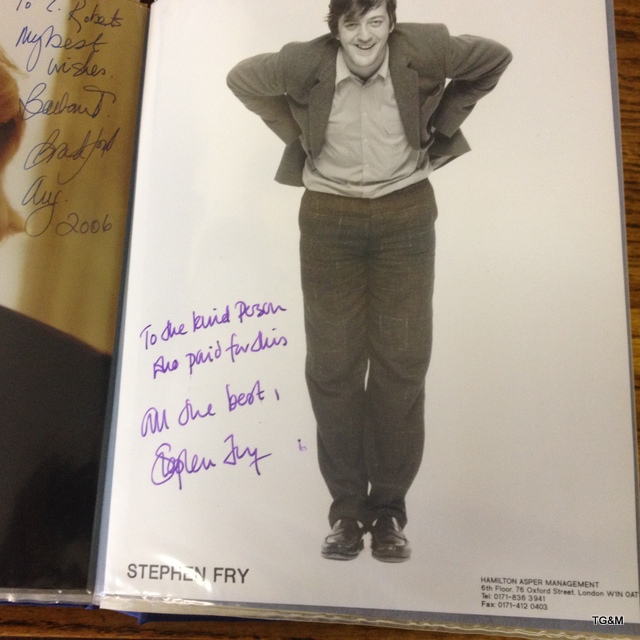 To C. Roberts
My best
wishes.
Barbara T.
Bradford
Aug.
2006
To the kind person
who paid for this
All the best,
Stephen Fry
STEPHEN FRY
HAMILTON ASPER MANAGEMENT
6th Floor, 76 Oxford Street, London W1N 0AT
Tel: 0171-836 3941
Fax: 0171-412 0403
TG&M